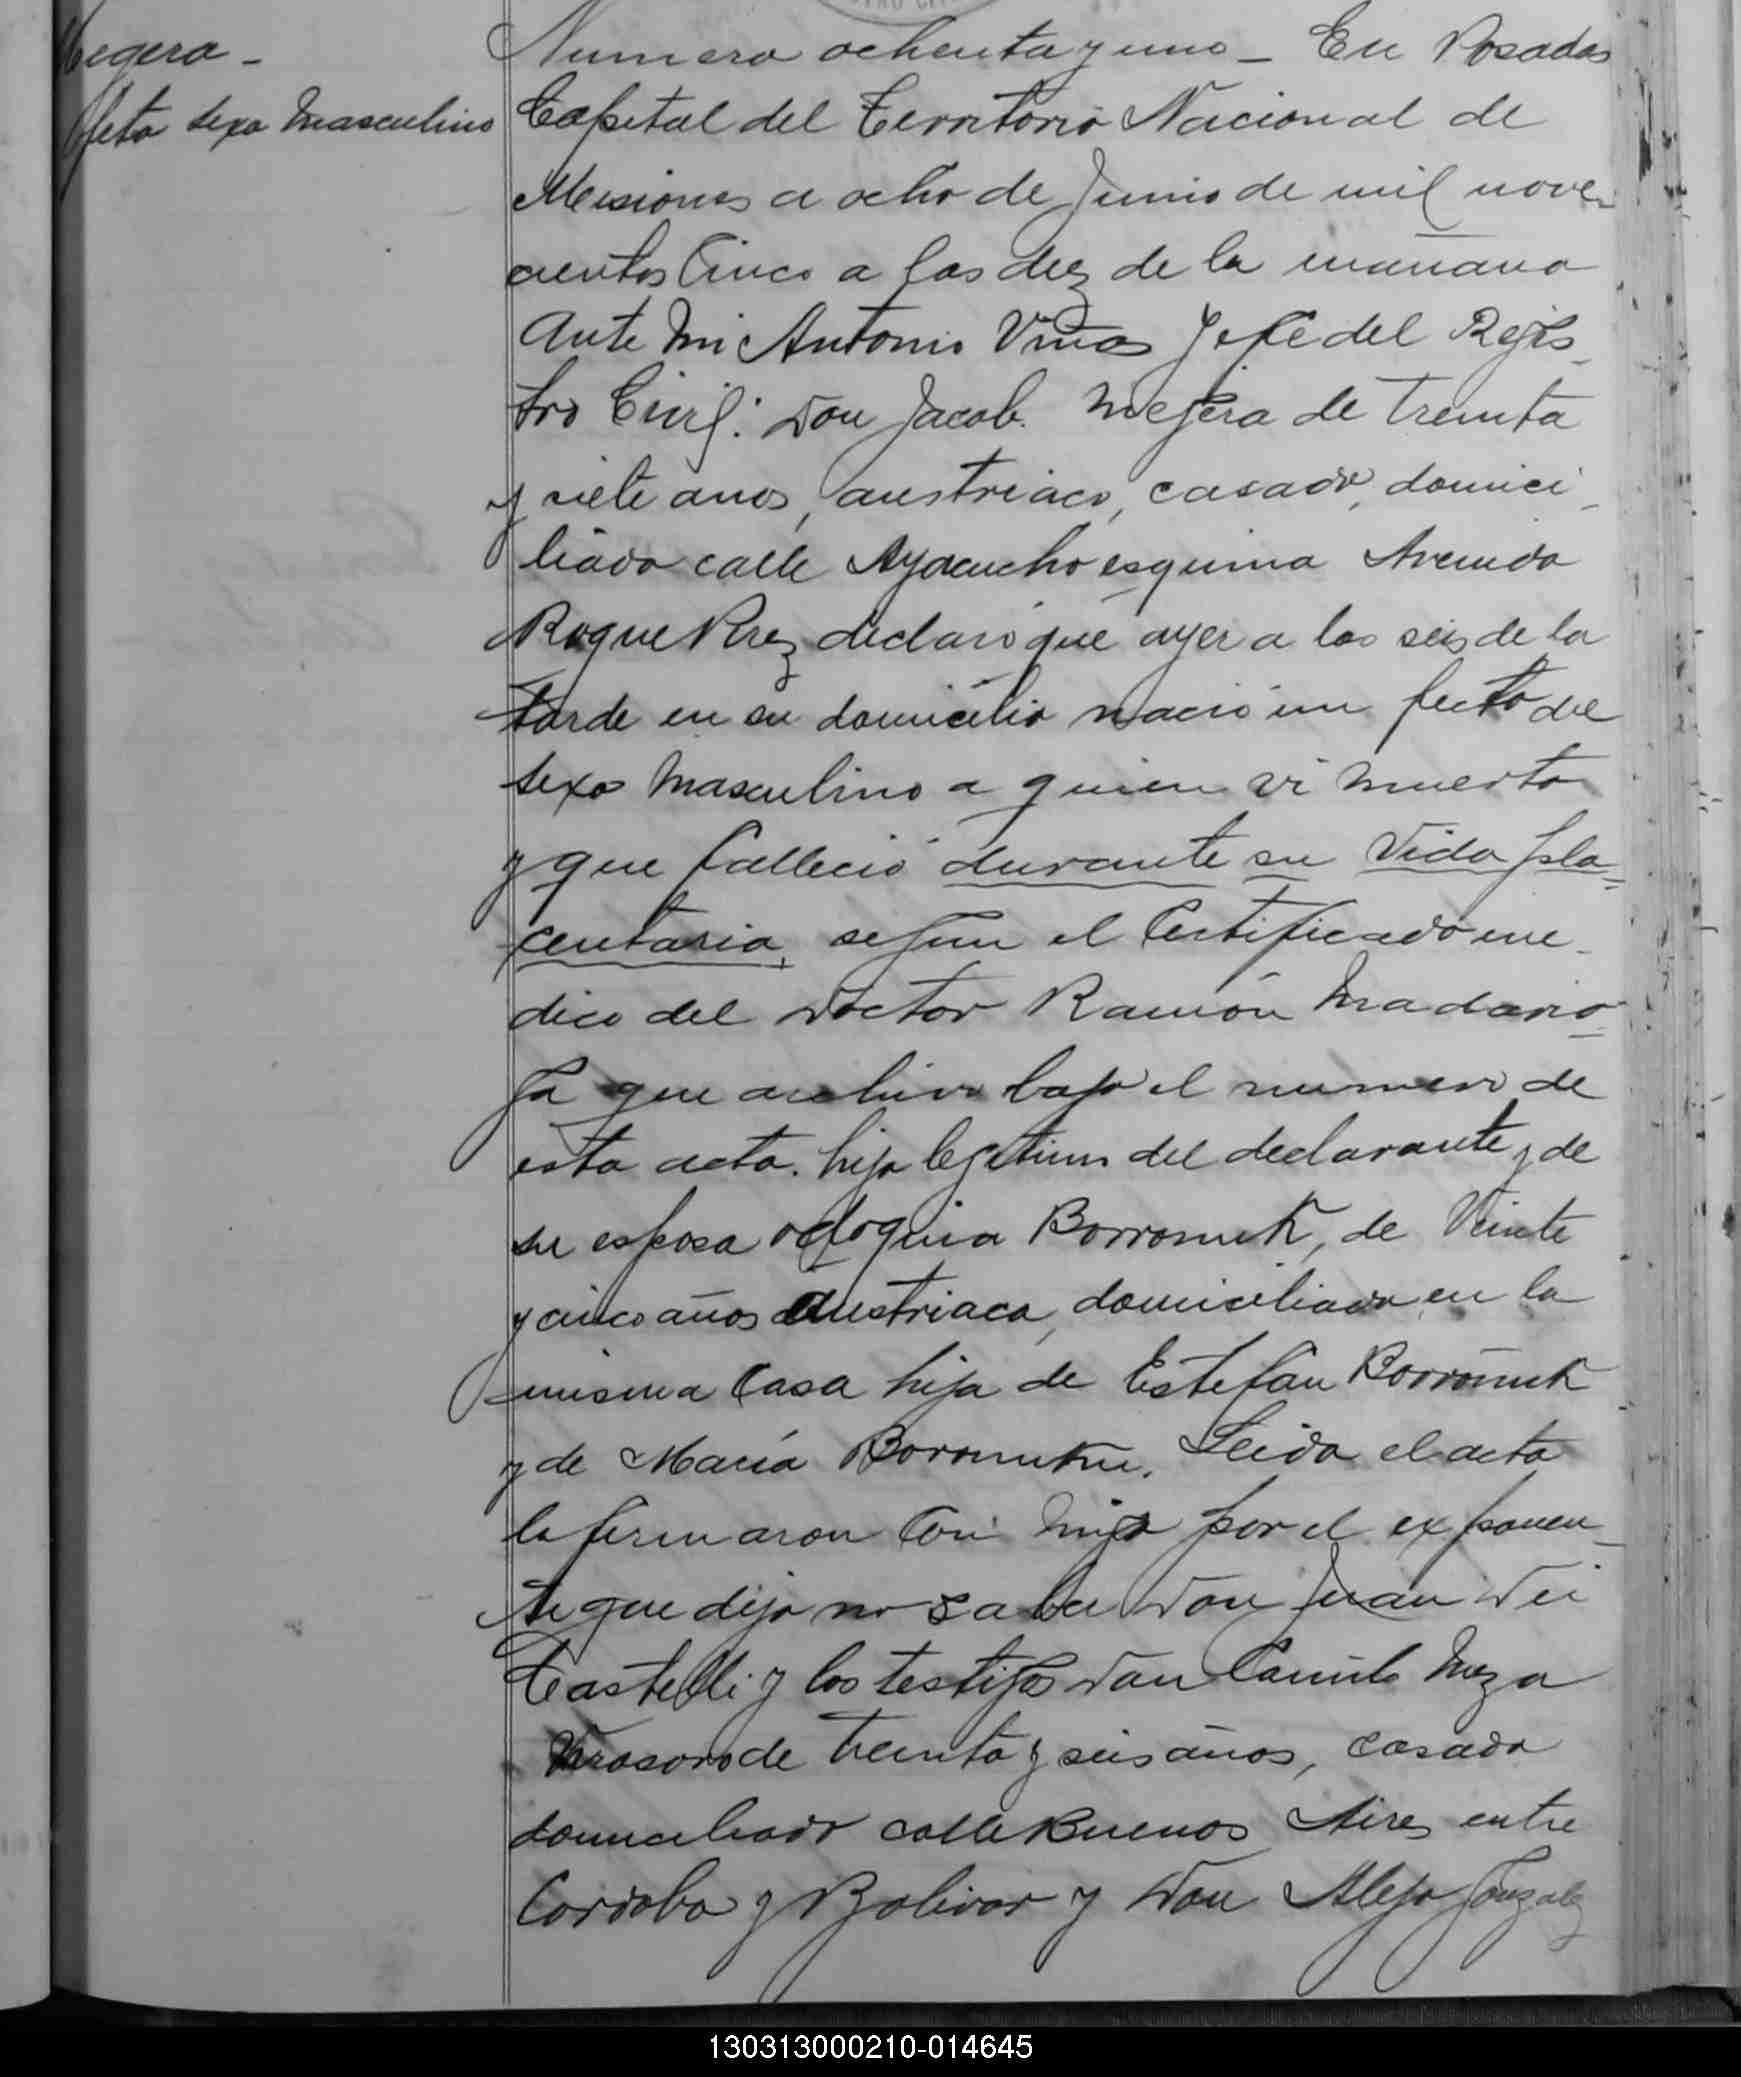 Megera -
feto sexo masculino
Numero ochenta y uno - En Posadas
Capital del Territorio Nacional de
Misiones a ocho de Junio de mil nove-
cientos Cinco a las diez de la mañana
Ante mi Antonio Viñas Jefe del Regis-
tro Civil: Don Jacob Megera de treinta
y siete anos, austriaco, casado, domici-
liado calle Ayacucho esquina Avenida
Roque Perez declaró que ayer a las seis de la
tarde en su domicilio nació un fecto del
sexo masculino a quien vi muerto
y que falleció durante su Vida pla-
centaria, según el Certificado me-
dico del Doctor Ramón Madaria-
ga que archivo bajo el numero de
esta acta. hijo legitimo del declarante y de
su esposa Borronuk, de Veinte
y cinco años Austriaca, domiciliada en la
misma Casa hija de Estefan Borronuk
y de María. Leida el acta
la firmaron Con migo por el exponen-
te que dijo no saber Don Juan Dei
Castelli y los testigos Don Camilo Meza
de treinta y seis años, casado
domiciliado calle Buenos Aires entre
Cordoba y Bolivar y Don Alejo Gonzalez
130313000210-014645